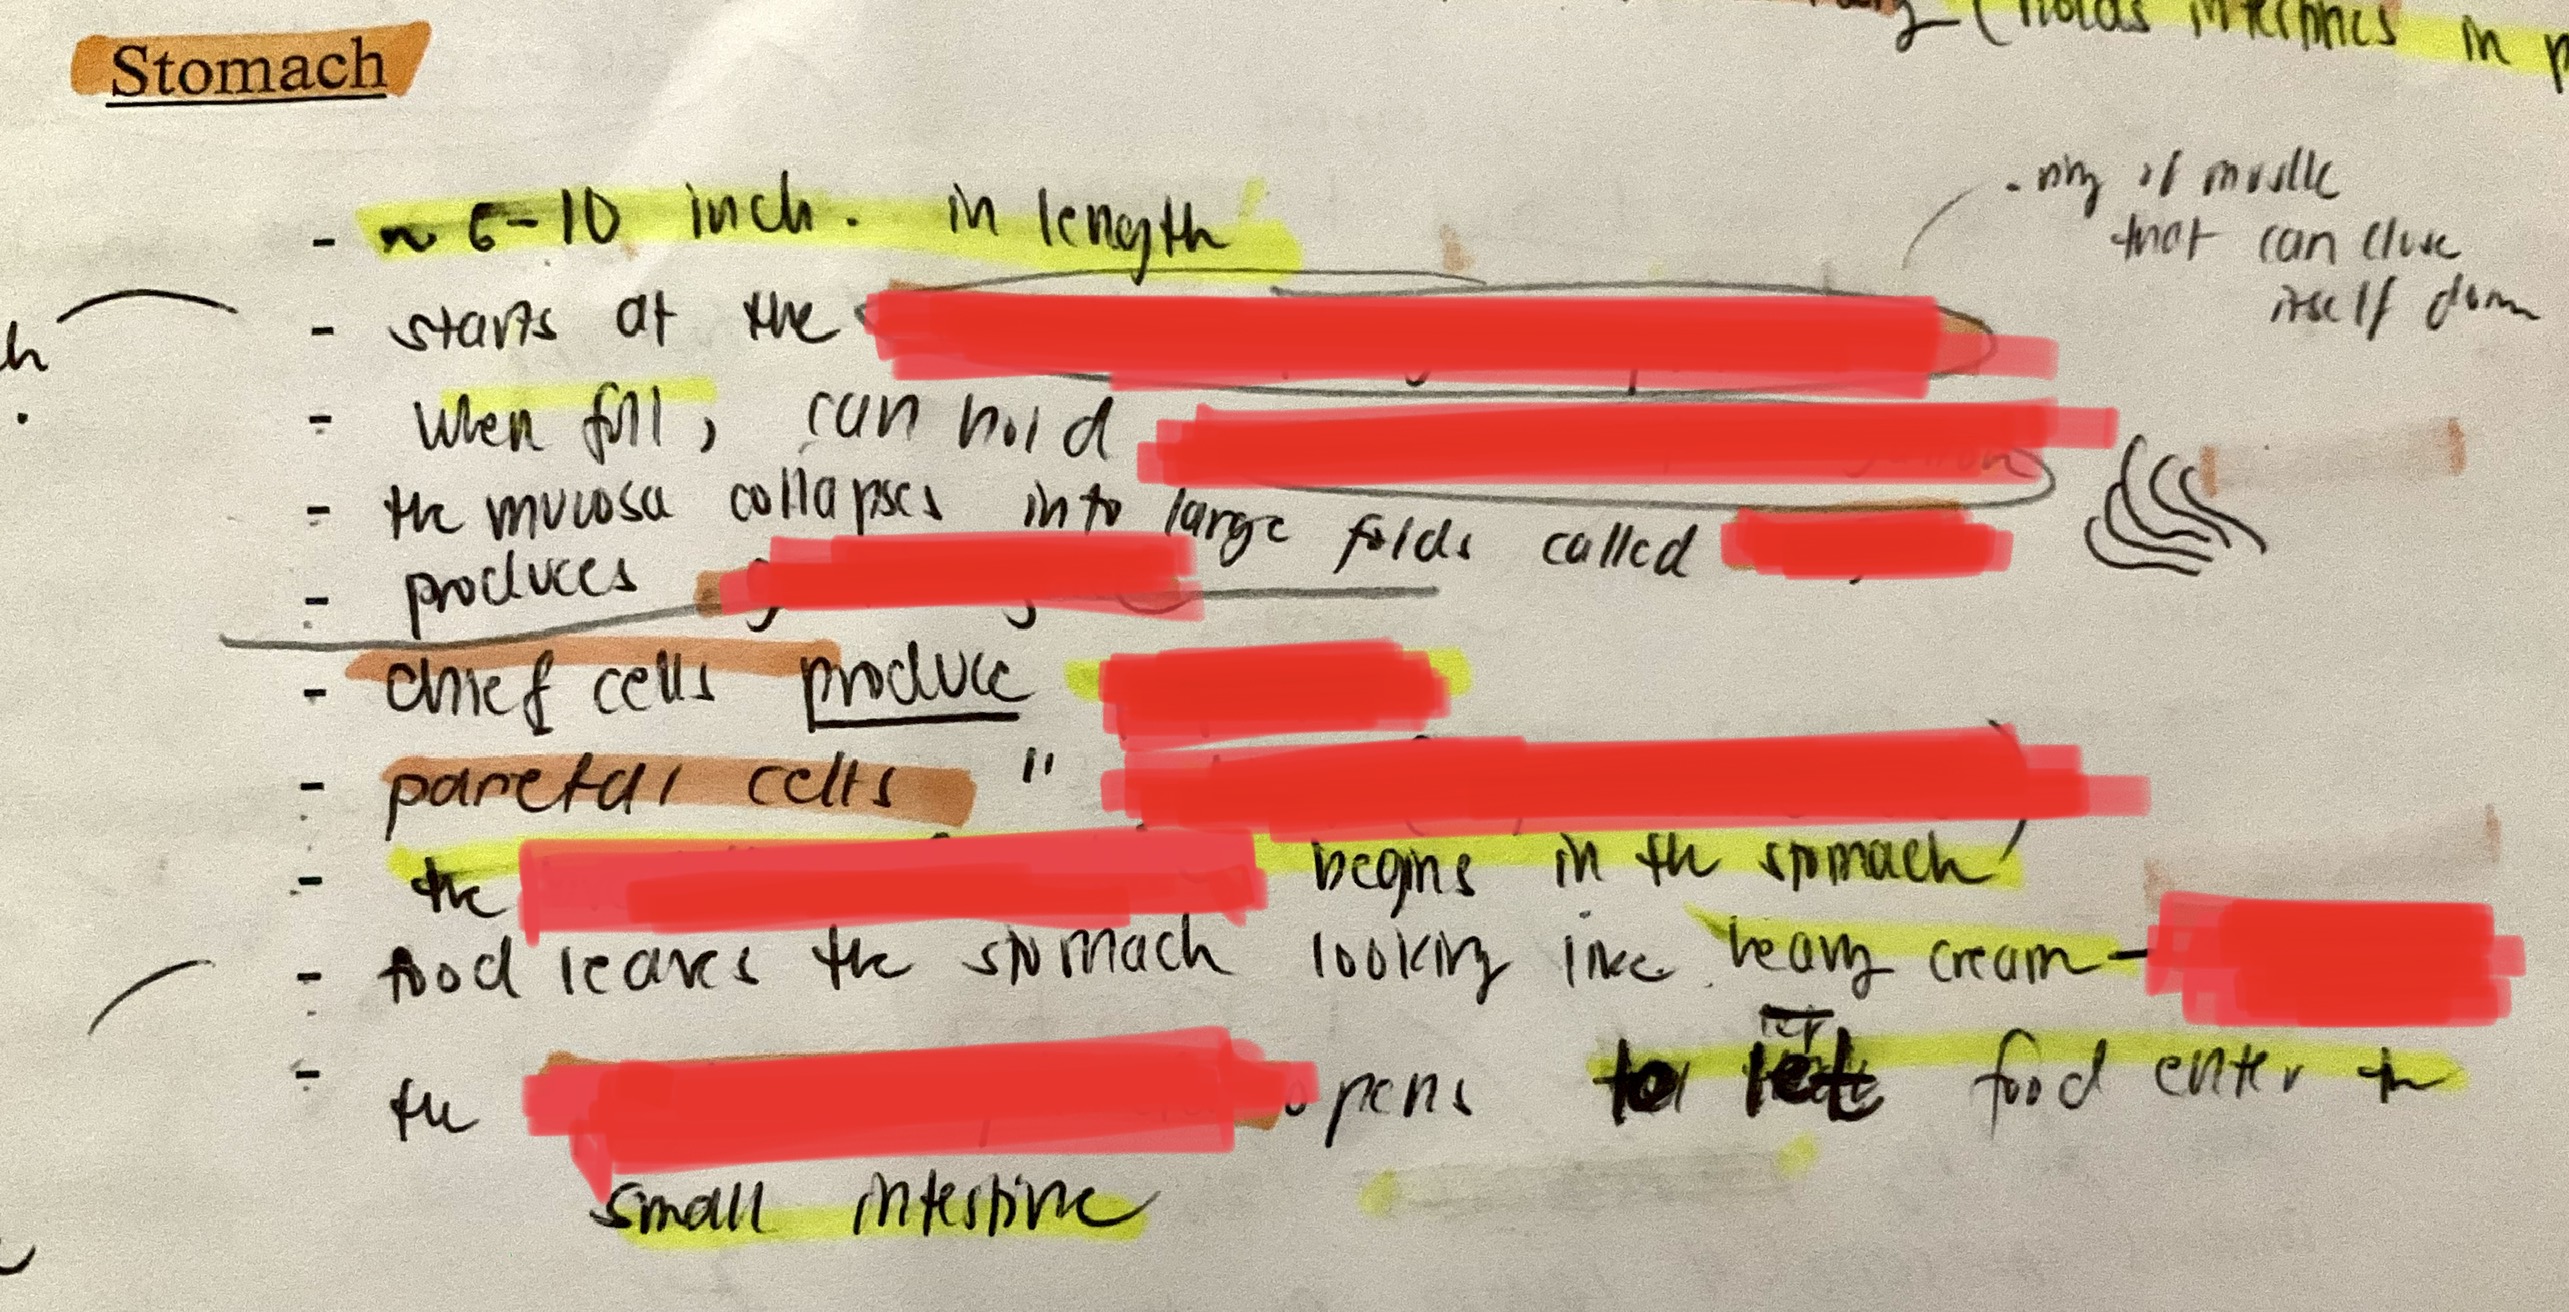 (holds intestines in p
Stomach
- ring of muscle
that can close
itself down
- ~ 6-10 inch. in length
- starts at the
- when full, can hold
- the mucosa collapses into large folds called
- produces
- chief cells produce
- parietal cells "
- the begins in the stomach
- food leaves the stomach looking like heavy cream -
- the opens to let food enter the
small intestine